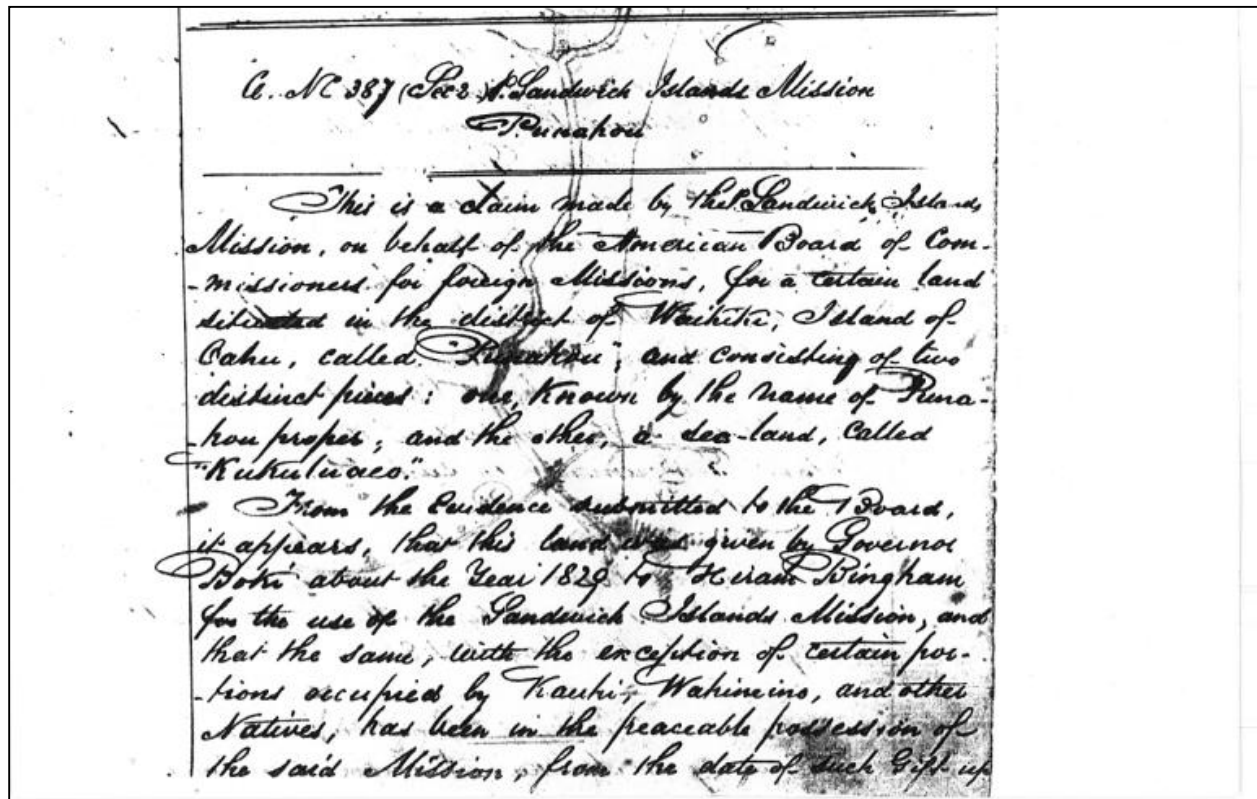 Cl. No 387 (Sec 2) Sandwich Islands Mission
Punahou
This is a claim made by the Sandwich Islands
Mission, on behalf of the American Board of Com-
-missioners for foreign Missions, for a certain land
situated in the district of Waikiki, Island of
Oahu, called "Punahou", and consisting of two
distinct pieces: one, Known by the name of Puna-
-hou proper, and the other, a sea-land, called
"Kukuluaeo."
From the Evidence submitted to the Board,
it appears, that this land was given by Governor
Boki about the Year 1829 to Hiram Bingham
for the use of the Sandwich Islands Mission, and
that the same, with the exception of certain por-
-tions occupied by Kauhi, and other
Natives, has been in the peaceable possession of
the said Mission, from the date of such Gift up